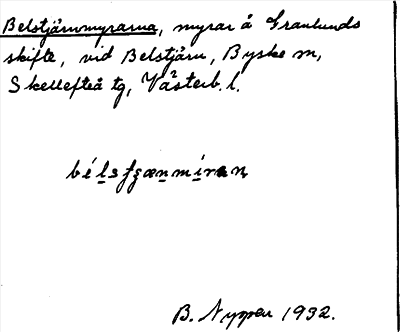 Belstjärnmyrarna, myrar å Granlunds
skifte, vid Belstjärn, Byske sn,
Skellefteå tg, Västerb. l.
B. Nyman 1932.